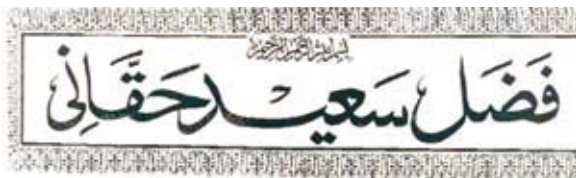 بسم الله الرحمن الرحيم
فَضَل سَعِيد حَقَّانِی